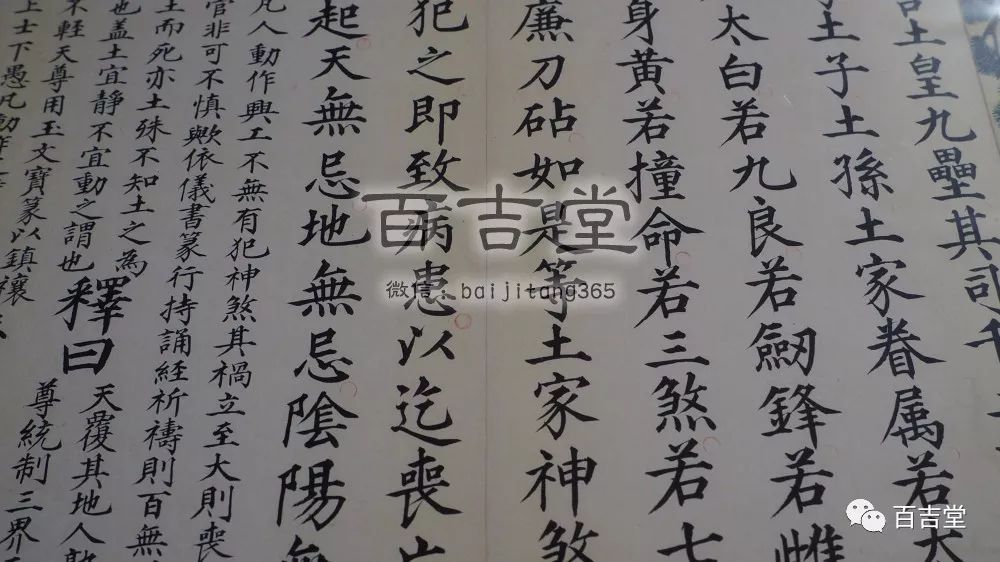 土皇九壘其司千
土子土孫土家眷属若太
太白若九良若劒鋒若雌
身黄若撞命若三煞若七
廉刀砧如是等土家神煞
犯之即致病患以迄喪亡
起天無忌地無忌隂陽無
凡人動作興工不無有犯神煞其禍立至大則喪
管非可不慎歟依儀書篆行持誦經祈禱則百無
土而死亦土殊不知土之為
也盖土宜靜不宜動之謂也
不輕天尊用玉文寶篆以鎮禳
上士下愚凡動作
釋曰
天覆其地人
尊統制三界
百吉堂
微信：baijitang365
百吉堂